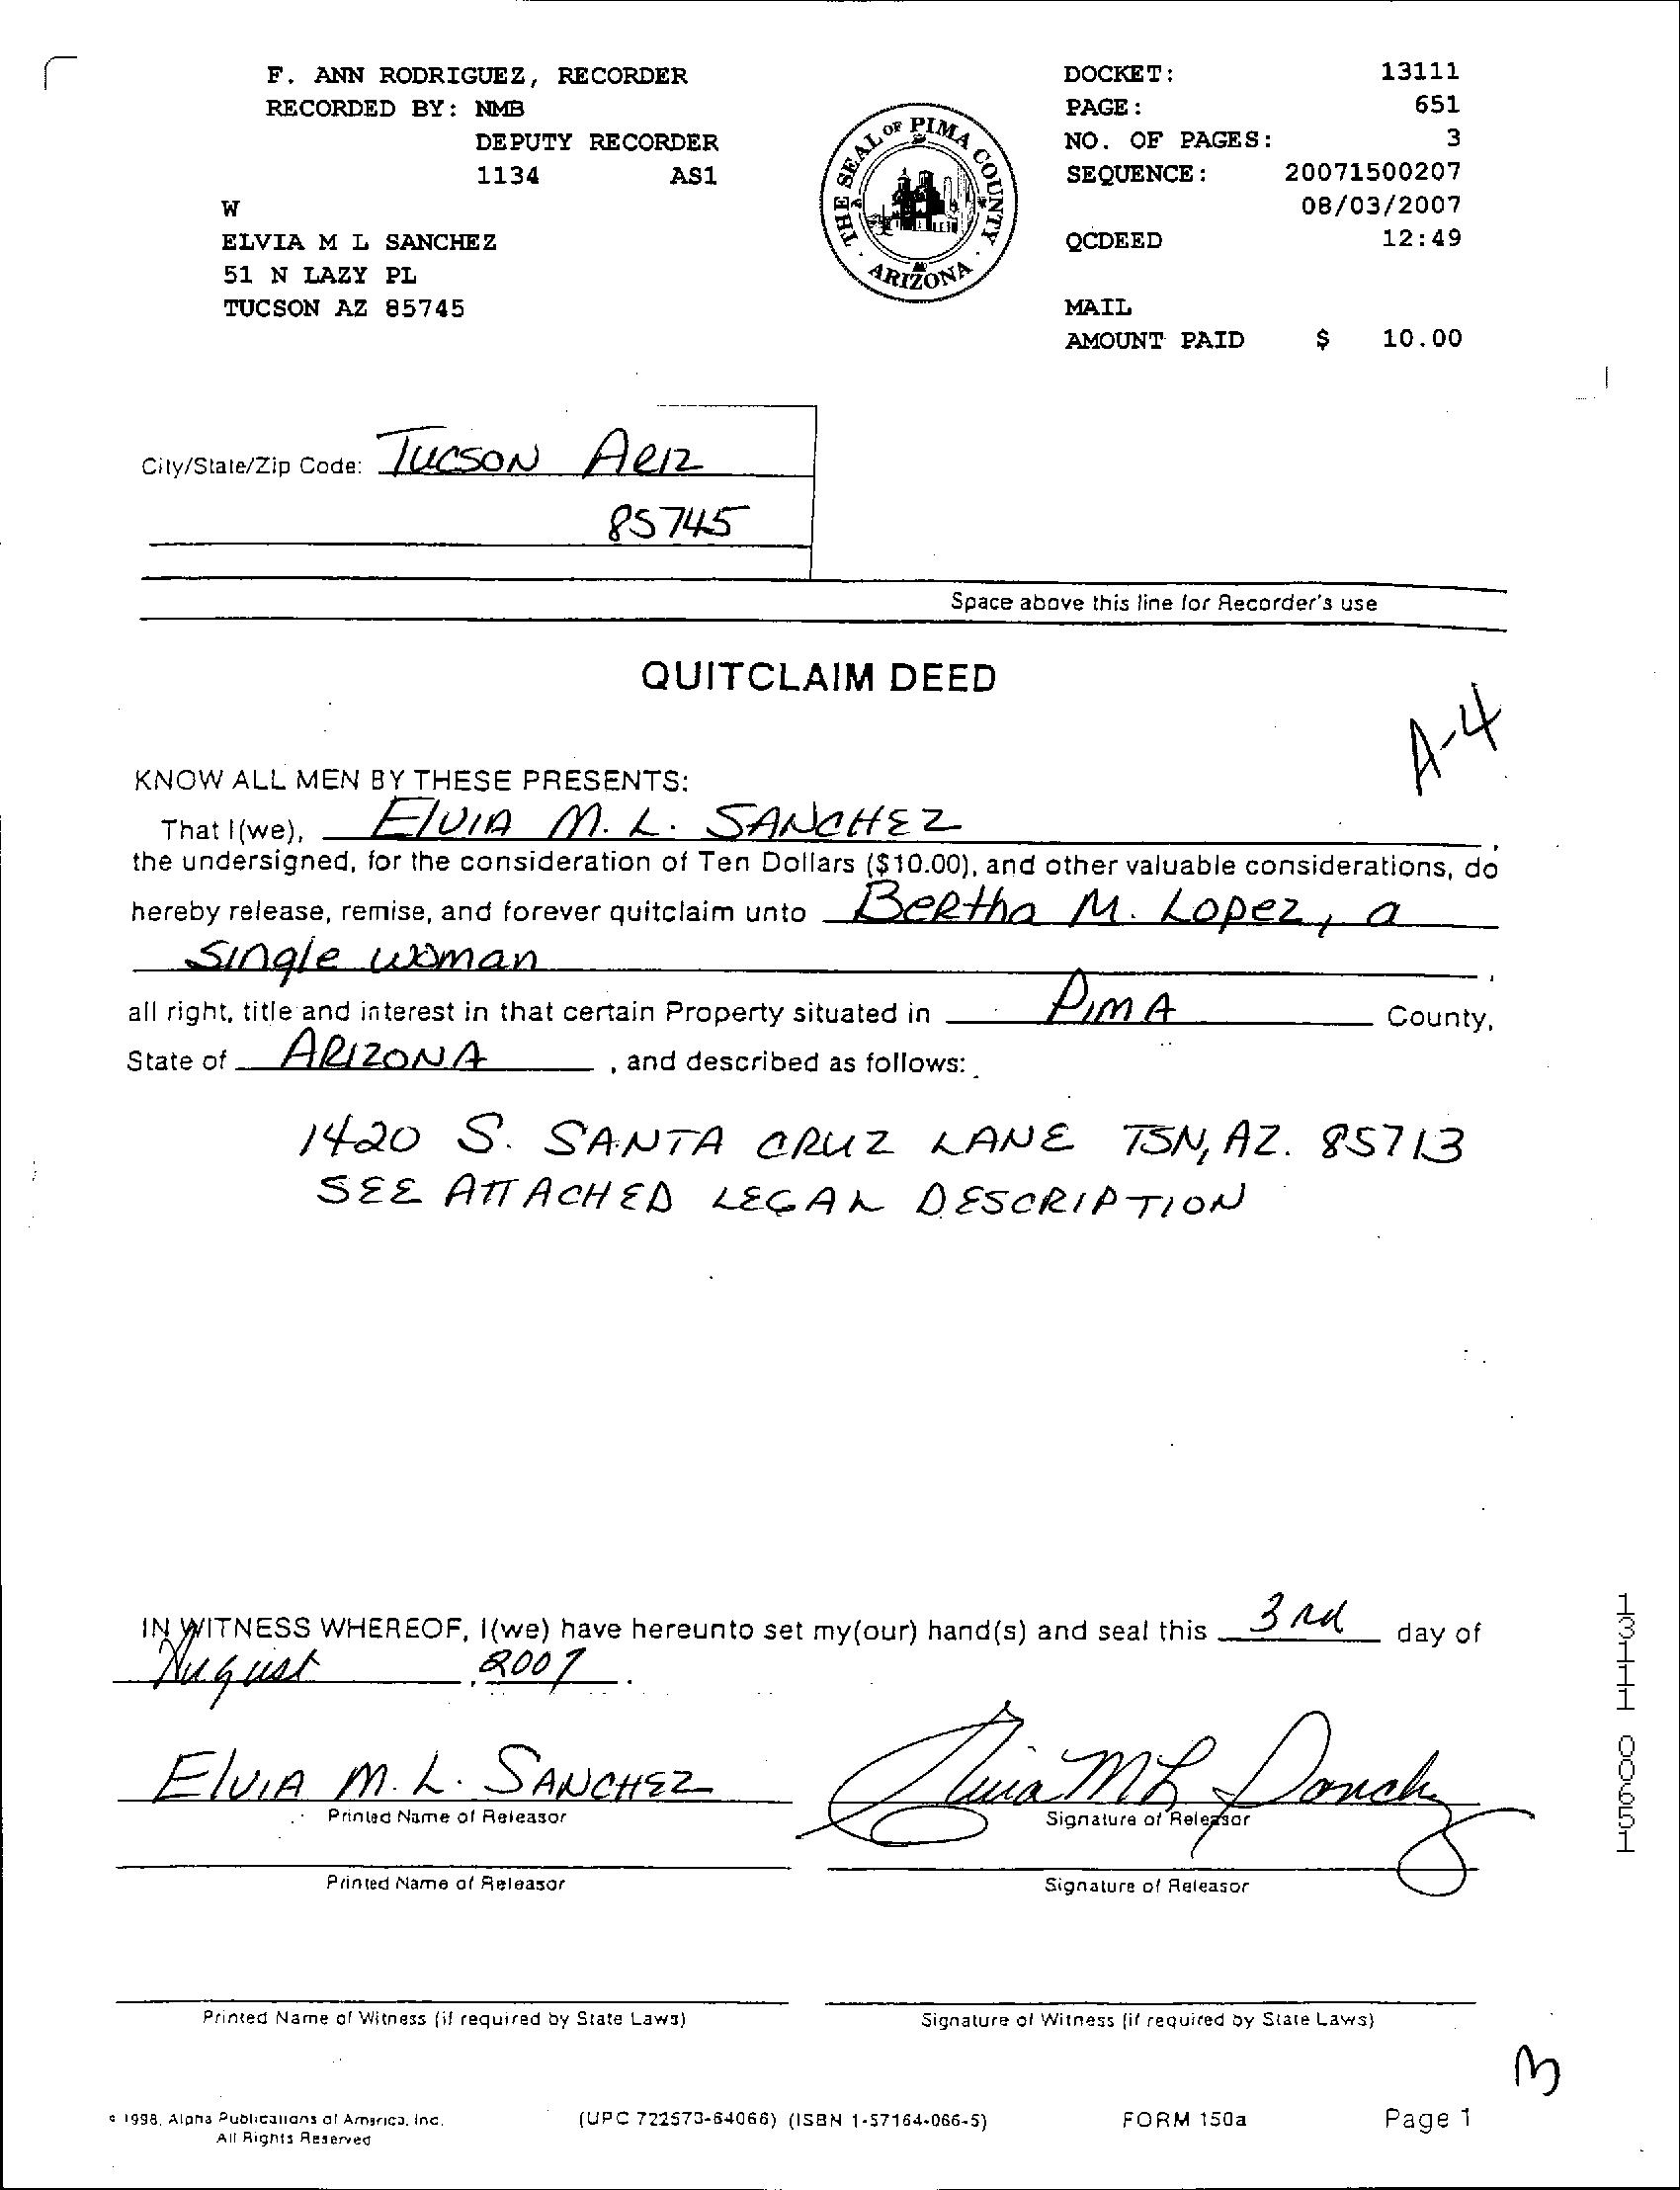 F. ANN RODRIGUEZ, RECORDER
RECORDED BY: NMB
DEPUTY RECORDER
1134 AS1
W
ELVIA M L SANCHEZ
51 N LAZY PL
TUCSON AZ 85745
THE SEAL OF PIMA COUNTY · ARIZONA ·
DOCKET: 13111
PAGE: 651
NO. OF PAGES: 3
SEQUENCE: 20071500207
08/03/2007
QCDEED 12:49
MAIL
AMOUNT PAID $ 10.00
City/State/Zip Code: TUCSON ARIZ
85745
Space above this line for Recorder's use
QUITCLAIM DEED
A-4
KNOW ALL MEN BY THESE PRESENTS:
That I(we), ElVIA M. L. SANCHEZ,
the undersigned, for the consideration of Ten Dollars ($10.00), and other valuable considerations, do
hereby release, remise, and forever quitclaim unto Bertha M. Lopez, a
Single woman,
all right, title and interest in that certain Property situated in PIMA County,
State of ARIZONA, and described as follows:
1420 S. SANTA CRUZ LANE TSN, AZ. 85713
SEE ATTACHED LEGAL DESCRIPTION
IN WITNESS WHEREOF, I(we) have hereunto set my(our) hand(s) and seal this 3rd day of
August, 2007.
ElVIA M. L. SANCHEZ
Elvia M L Sanchez
Printed Name of Releasor
Signature of Releasor
Printed Name of Releasor
Signature of Releasor
Printed Name of Witness (if required by State Laws)
Signature of Witness (if required by State Laws)
13111 00651
3
© 1998, Alpha Publications of America, Inc.
All Rights Reserved
(UPC 722573-64066) (ISBN 1-57164-066-5)
FORM 150a
Page 1